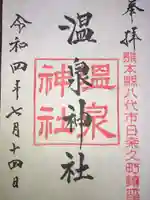 奉拝
熊本縣八代市日奈久
温泉神社
温泉
神社
令和四年七月十四日